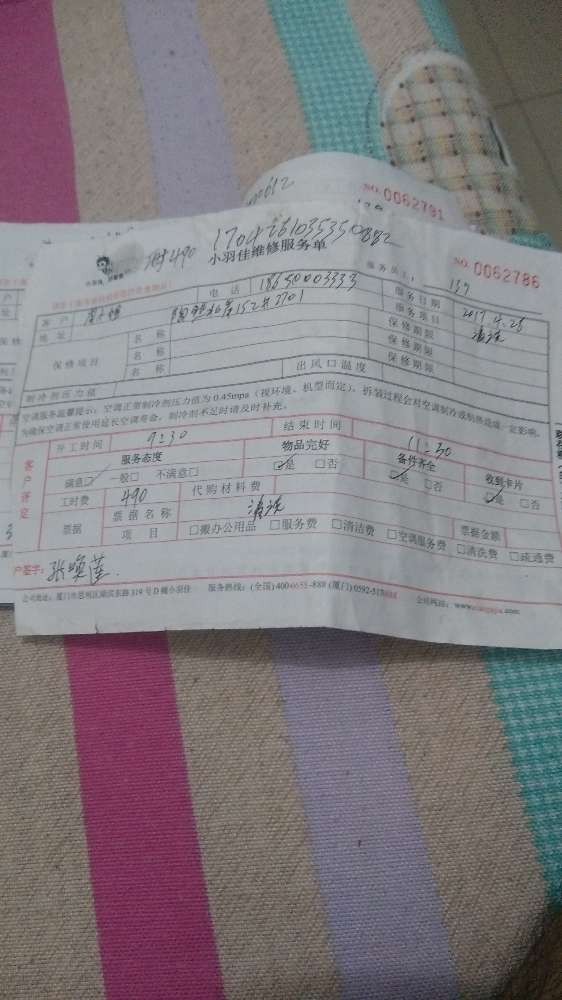 NO. 0062791
附490 1704261035350882
小羽佳维修服务单
NO. 0062786
服务员工: 137
客户 电话 18650003333 服务日期 2017.4.26
地址 15之2#2701 服务项目 清洗
保修项目 名称 保修期限
名称 保修期限
名称 保修期限
制冷剂压力值 出风口温度
空调服务温馨提示:空调正常制冷剂压力值为0.45mpa(视环境、机型而定),拆装过程会对空调制冷或制热造成一定影响,
为确保空调正常使用延长空调寿命,制冷剂不足时请及时补充。
客户评定
开工时间 9:30 结束时间 11:30
服务态度 物品完好 备件齐全 收到卡片
满意☑ 一般□ 不满意□ ☑是 □否 ☑是 □否 ☑是 □否
工时费 490 代购材料费
票据 票据名称 清洗 票据金额
项目 □搬办公用品 □服务费 □清洁费 □空调服务费 □清洗费 □疏通费
户签字: 张焕莲
公司地址:厦门市思明区湖滨东路319号D幢小羽佳 服务热线:(全国)400-6655-888 (厦门)0592-518 公司网站:www.